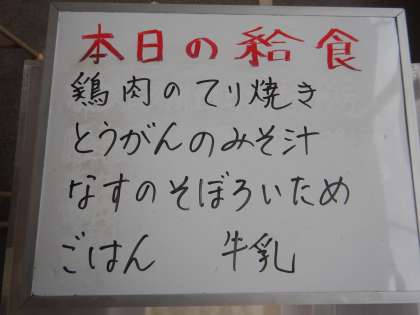 本日の給食
鶏肉のてり焼き
とうがんのみそ汁
なすのそぼろいため
ごはん 牛乳